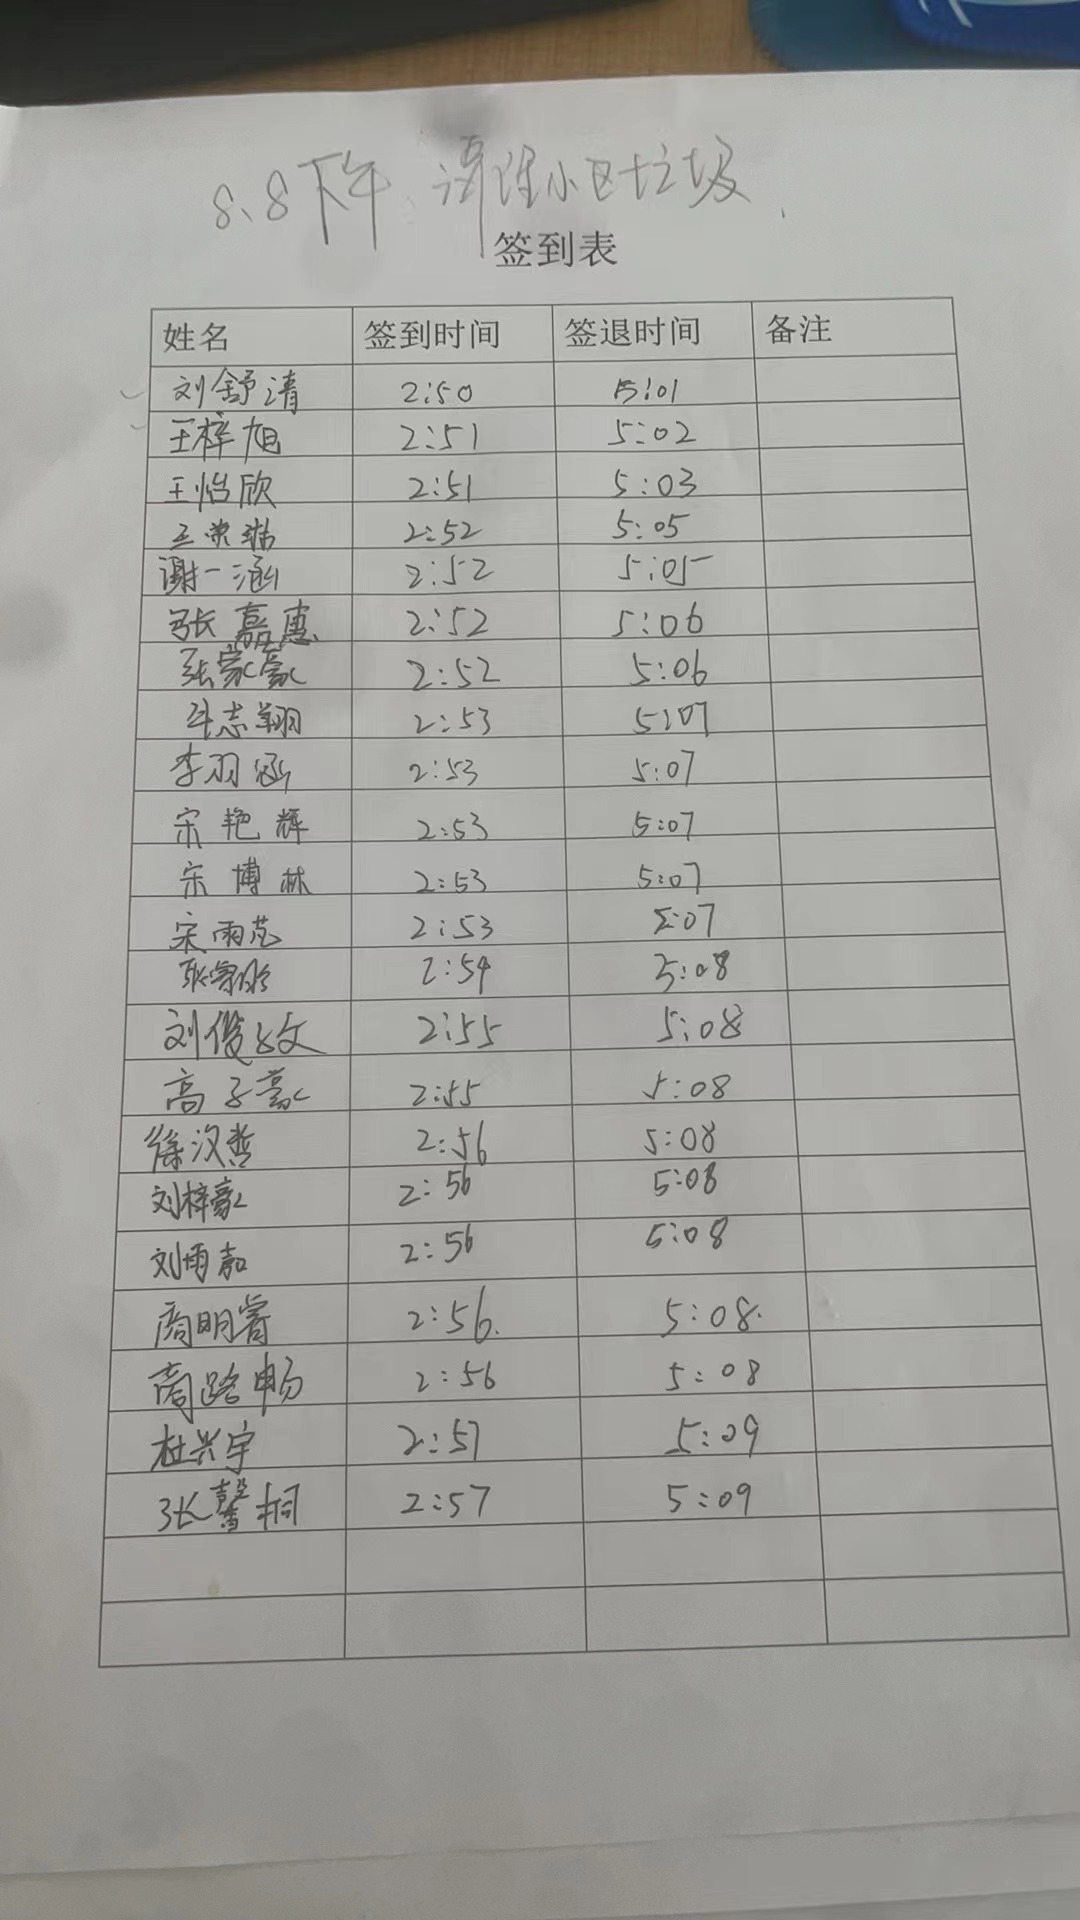 8.8下午 清理小区垃圾
签到表
姓名 签到时间 签退时间 备注
刘舒清 2:50 5:01
王梓旭 2:51 5:02
王怡欣 2:51 5:03
王 2:52 5:05
谢一涵 2:52 5:05
张嘉惠 2:52 5:06
张家豪 2:52 5:06
牛志翔 2:53 5:07
李羽涵 2:53 5:07
宋艳辉 2:53 5:07
宋博林 2:53 5:07
宋雨芯 2:53 5:07
张 2:54 5:08
刘俊文 2:55 5:08
高子豪 2:55 5:08
徐汉哲 2:56 5:08
刘梓豪 2:56 5:08
刘雨嘉 2:56 5:08
商明睿 2:56. 5:08.
商路畅 2:56 5:08
杜兴宇 2:57 5:09
张馨桐 2:57 5:09